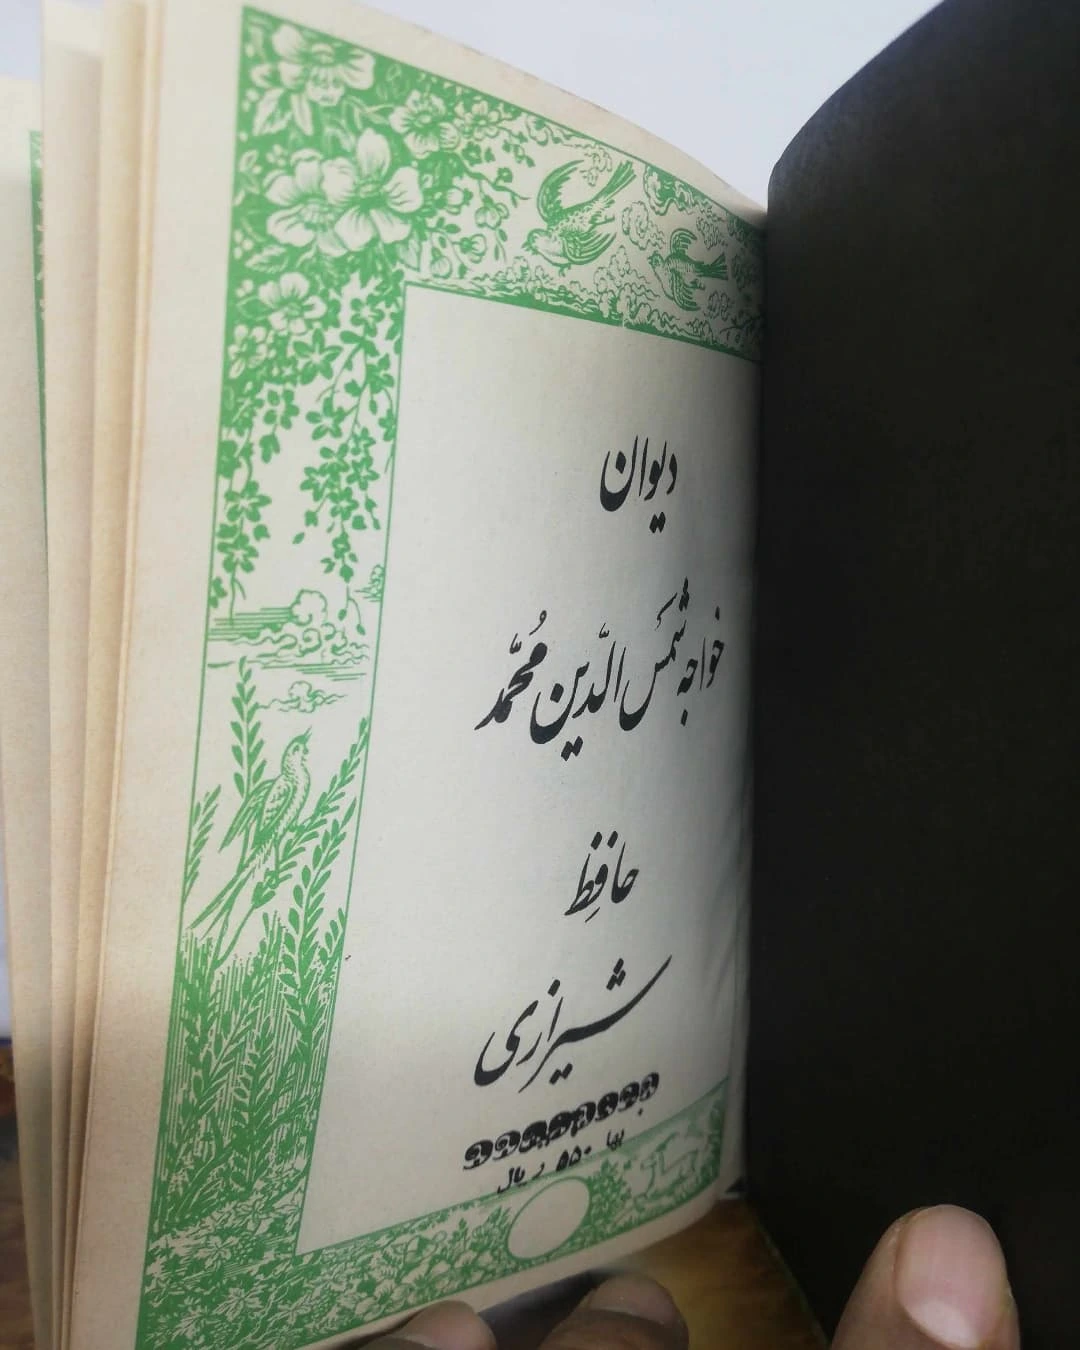 دیوان
خواجه شمس الّدین مُحمّد
حافِظ
شیرازی
بها ۵۵۰ ریال